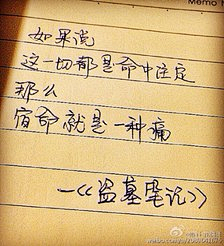 Memo N
如果说
这一切都是命中注定
那么
宿命就是一种痛
—《盗墓笔记》